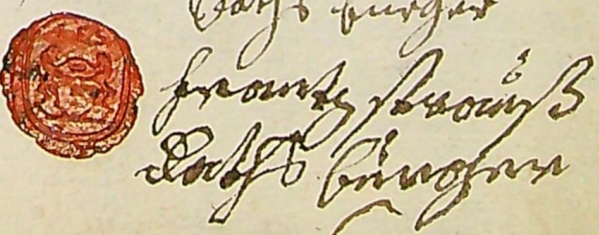 Raths bürger
Frantz Strauß
Raths bürger